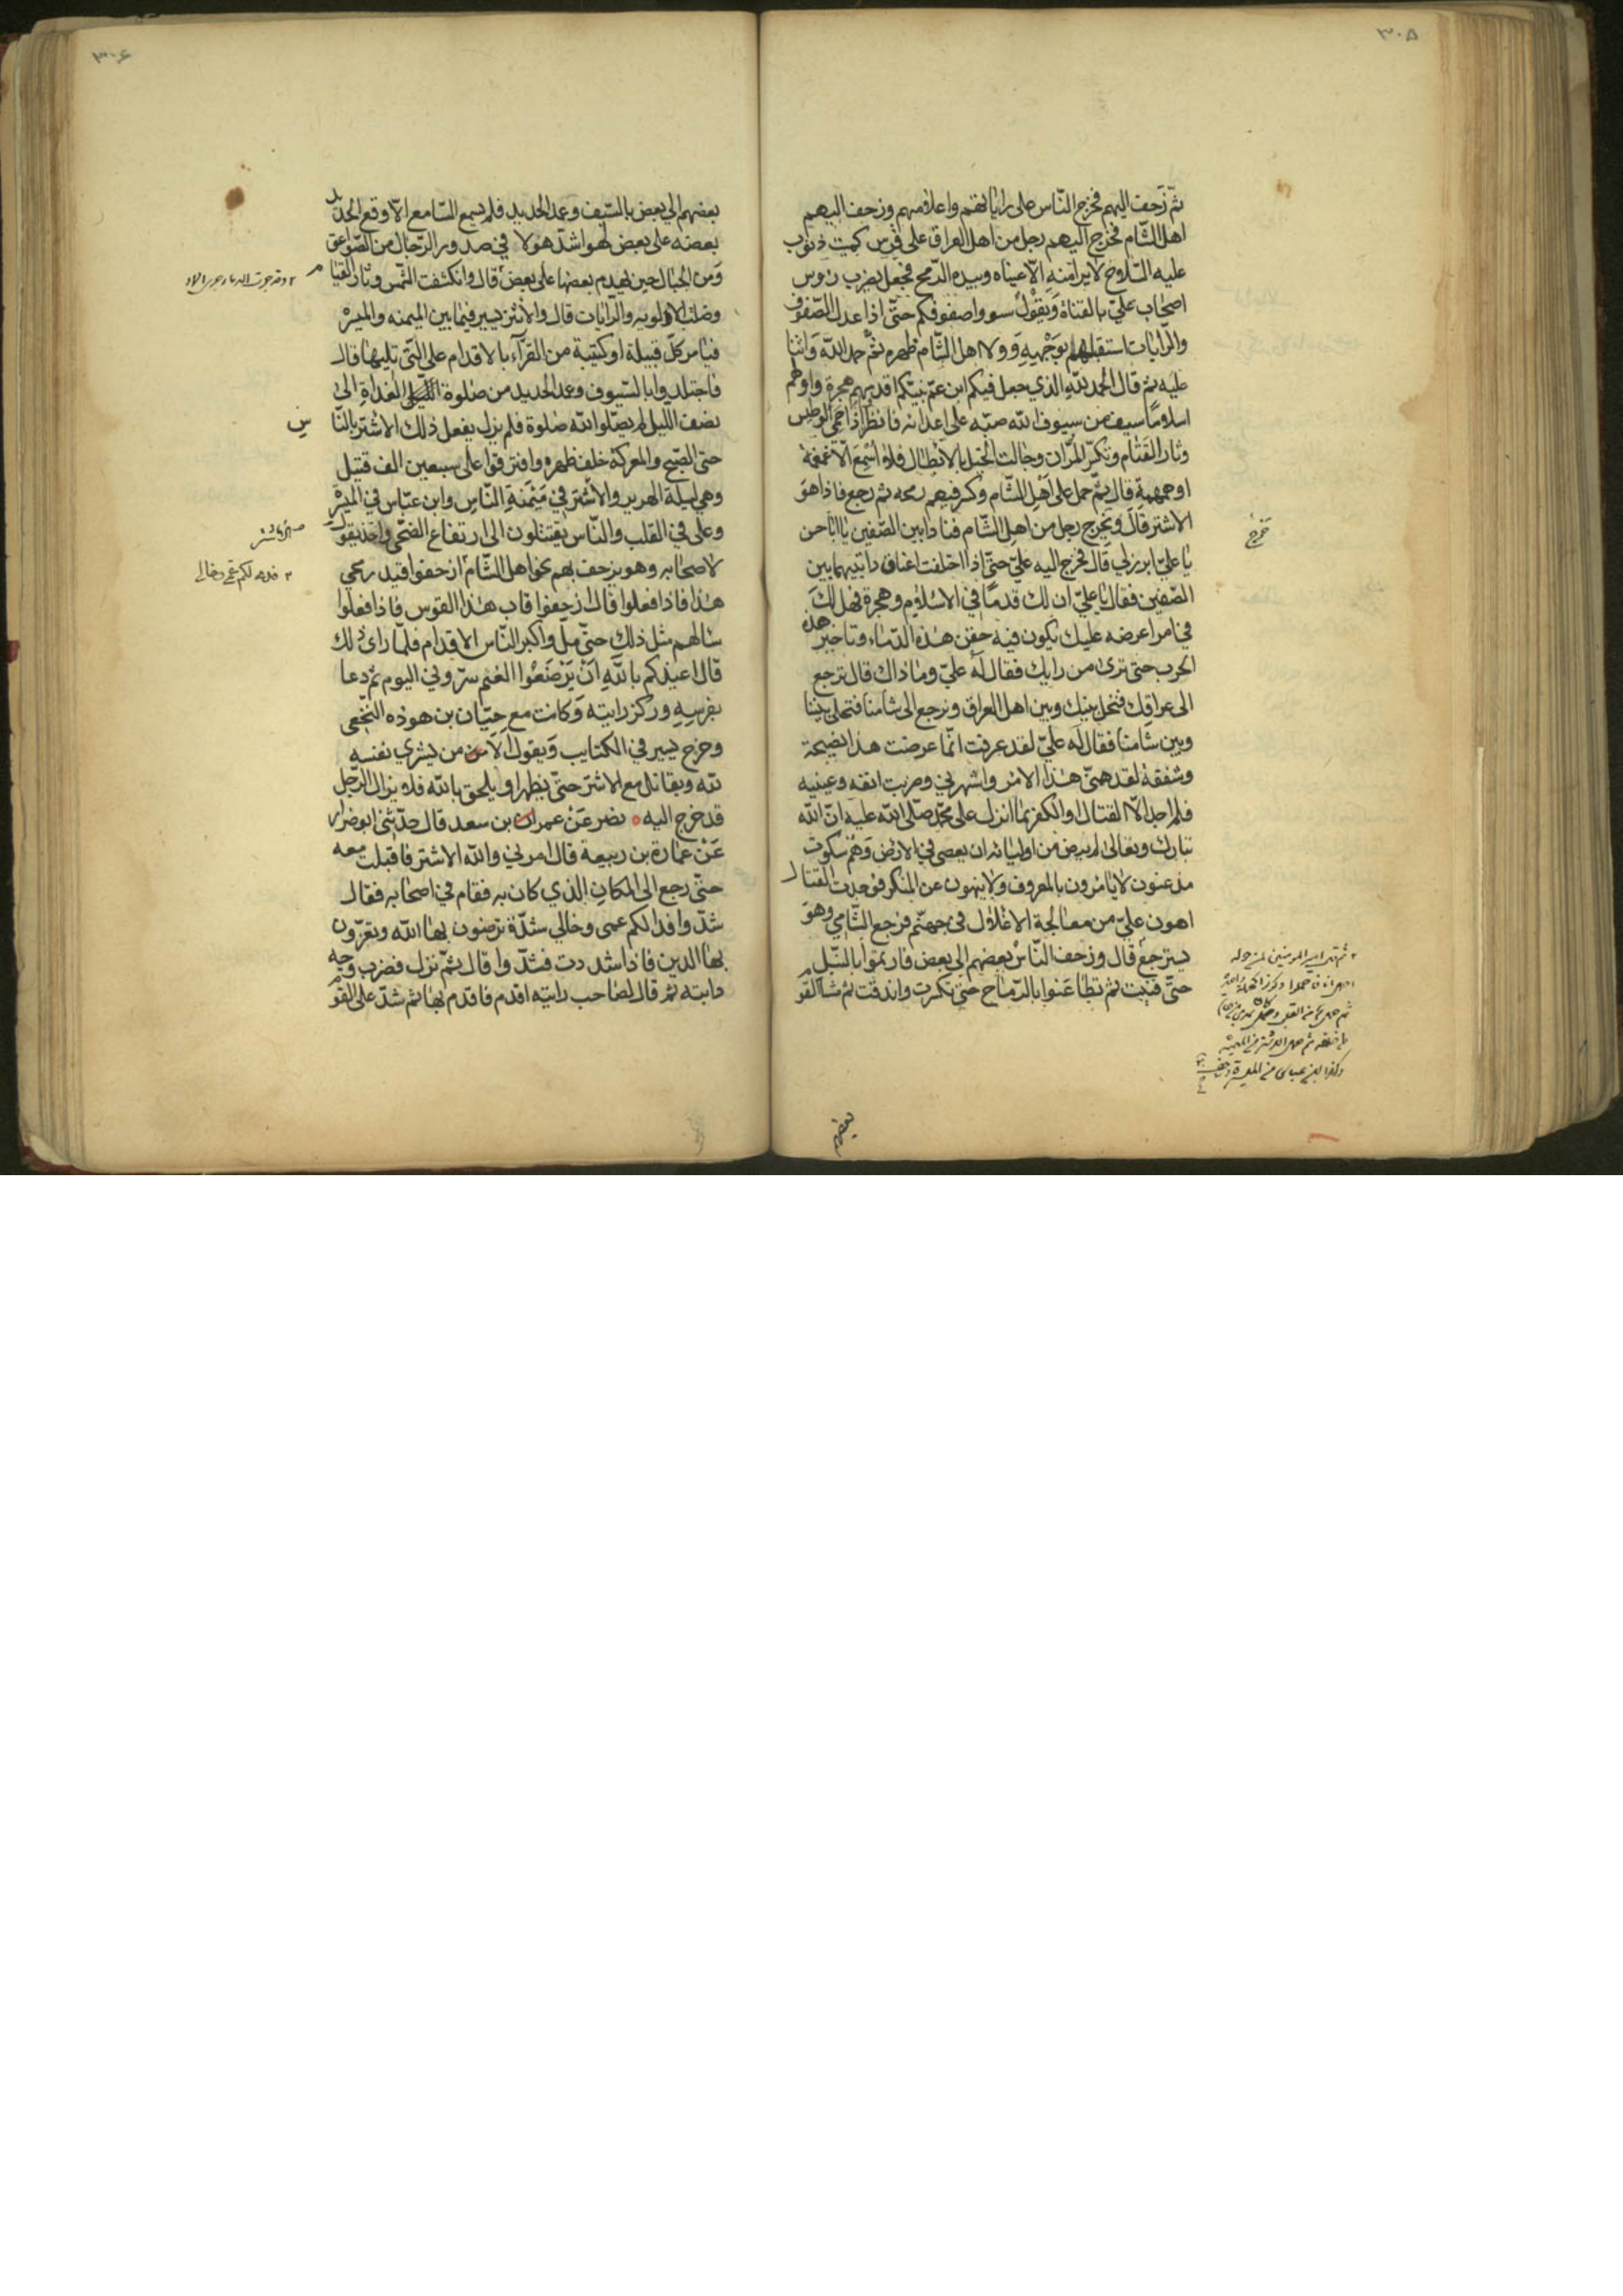 ٣٠٥
ثمّ زحف اليهم فخرج النّاس على راياتهم واعلامهم وزحف اليهم
اهل الشّام فخرج اليهم رجل من اهل العراق على فرس كميت ذنوب
عليه السّلاح لا يرا منه الّا عيناه وبيده الرّمح فجعل يضرب رؤس
اصحاب عليّ بالقناة ويقول سووا صفوفكم حتّى اذا عدل الصّفوف
والرّايات استقبلهم بوجهه وولا اهل الشّام ظهره ثمّ حمد اللّه واثنا
عليه ثم قال الحمد للّه الذي جعل فيكم ابن عمّ نبيّكم اقدمهم هجرة واولهم
اسلاما سيف من سيوف اللّه صبّه على اعدائه فانظروا اذا حمى الوطيس
وثار القتام وتكسّر المرّان وجالت الخيل بالابطال فلا اسمع الّا غمغمة
او همهمة قال ثمّ حمل على اهل الشّام وكسر فيهم رمحه ثم رجع فاذا هو
الاشتر قال ويخرج رجل من اهل الشّام فنادا بين الصّفين يا ابا حسن
خرج
يا عليّ ابرز لي قال فخرج اليه عليّ حتّى اذا اختلفت اعناق دابتيهما بين
الصّفين فقال يا عليّ ان لك قدما في الاسلام وهجرة فهل لك
في امر اعرضه عليك يكون فيه حقن هذه الدّماء وتاخير هذه
الحرب حتى ترى من رايك فقال له عليّ وما ذاك قال ترجع
الى عراقك فنخلّ بينك وبين اهل العراق ونرجع الى شامنا فتخلى بيننا
وبين شامنا فقال له عليّ لقد عرفت انّما عرضت هذا نصيحة
وشفقة لقد همّني هذا الامر واسهرني وضربت انفه وعينيه
فلم اجد الّا القتال والكفر بما انزل على محمّد صلّى اللّه عليه انّ اللّه
تبارك وتعالى لم يرض من اوليائه ان يعصى في الارض وهم سكوت
مذعنون لا يامرون بالمعروف ولا ينهون عن المنكر فوجدت القتال
اهون عليّ من معالجة الاغلال في جهنّم فرجع الشّامي وهو
يسترجع قال وزحف النّاس بعضهم الى بعض فارتموا بالنّبل
حتّى فنيت ثم تطاعنوا بالرّماح حتّى تكسرت واندقت ثم مشا القوم
بعضهم
٣٠٦
بعضهم الي بعض بالسّيف وعمد الحديد فلم يسمع السّامع الّا وقع الحديد
بعضه على بعض لهو اشدّ هولا في صدور الرّجال من الصّواعق
ومن الجبال حين يهدم بعضها على بعض قال وانكشفت الشّمس وثار القتام
وضلت الالويه والرايات قال والاشتر يسير فيما بين الميمنه والميسرة
فيامر كلّ قبيلة او كتيبة من القرّاء بالاقدام على التي تليها قال
فاجتلدوا بالسّيوف وعمد الحديد من صلوة الغداة الى
نصف الليل لم يصلّوا للّه صلوة فلم يزل يفعل ذلك الاشتر بالنّاس
حتى الصّبح والمعركة خلف ظهره وافترقوا على سبعين الف قتيل
وهي ليلة الهرير والاشتر في ميمنة النّاس وابن عبّاس في الميسرة
وعلى في القلب والنّاس يقتتلون الى ارتفاع الضحّى واخذ يقول
الاشتر
لاصحابه وهو يزحف بهم نحو اهل الشّام ازحفوا قيد رمحي
هذا فاذا فعلوا قال ازحفوا قاب هذا القوس فاذا فعلوا
سالهم مثل ذلك حتّى ملّ اكبر النّاس الاقدام فلمّا راى ذلك
قال اعيذكم باللّه ان ترضعوا الغنم سروني اليوم ثم دعا
بفرسه وركز رايته وكانت مع حيّان بن هوذه النّخعي
وخرج يسير في الكتايب ويقول الا من يشري نفسه
للّه ويقاتل مع الاشتر حتّى يظهر او يلحق باللّه فلا يزال الرّجل
قد خرج اليه نصر عن عمر بن سعد قال حدّثني ابو ضرار
عن عمارة بن ربيعة قال امر لي واللّه الاشتر فاقبلت معه
حتى رجع الى المكان الذي كان به فقام في اصحابه فقال
شدّوا فدا لكم عمى وخالي شدّة ترضون بها اللّه وتعزّون
بها الدين فاذا شددت فشدّوا قال ثمّ نزل فضرب وجه
دابته ثم قال لصاحب رايته اقدم فاقدم بها ثم شدّ على القوم